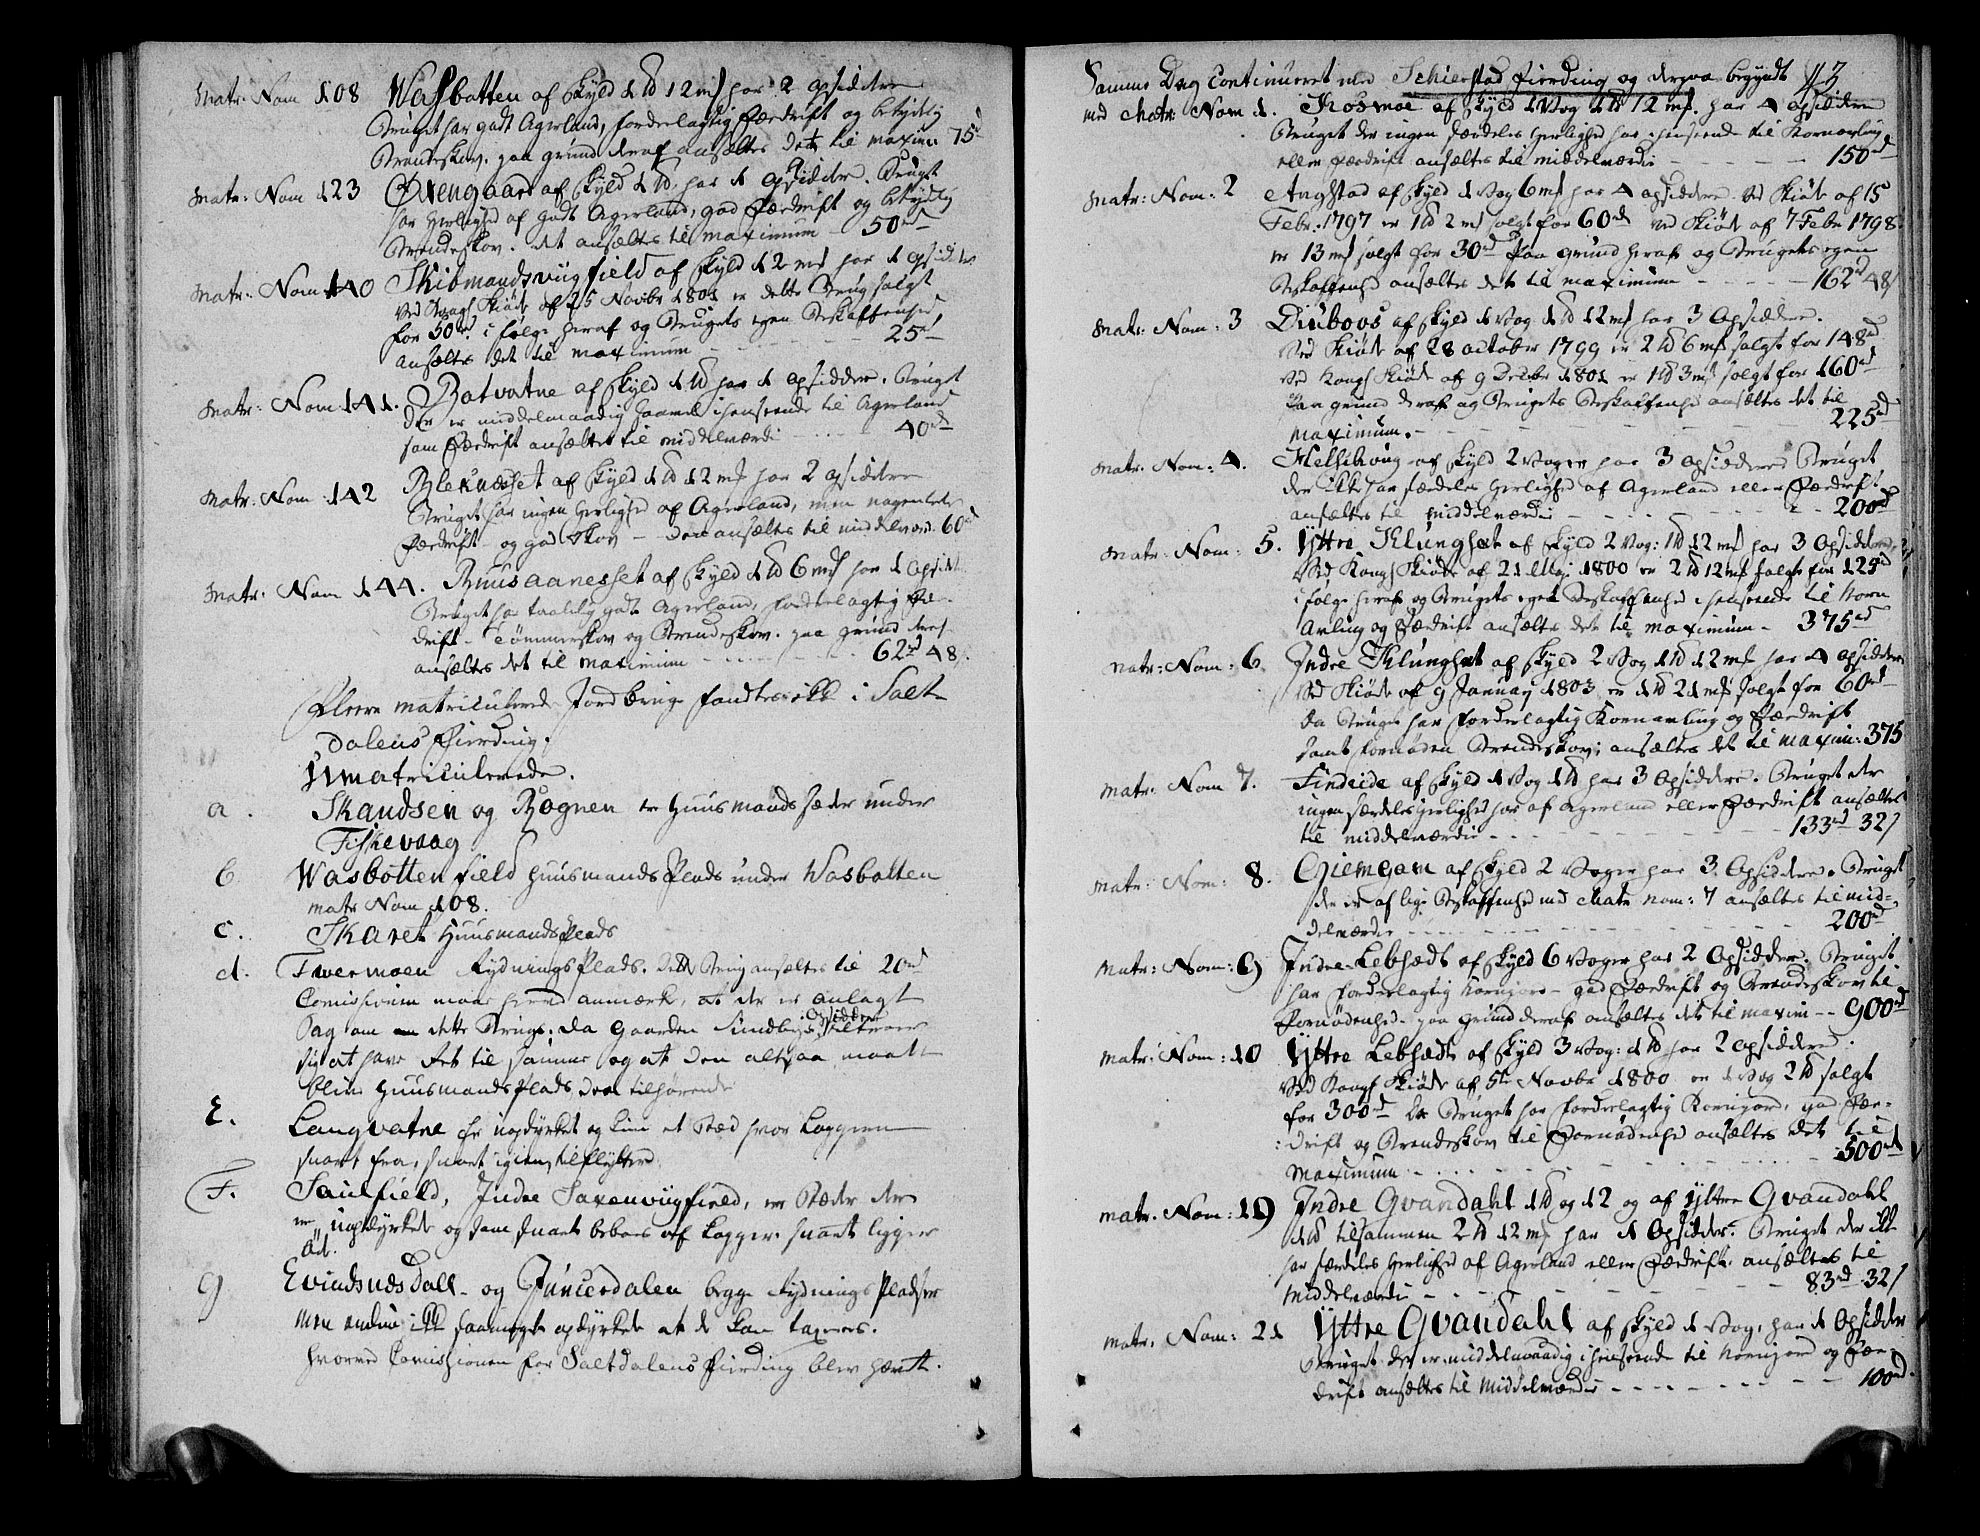 Matr: Nom 108 Wasbotten af Skyld 1 td 12 mk har 2 opsiddere
Bruget har godt Agerland, fordeelagtig Fædrift og betydelig
Brændeskov. paa grund deraf ansættes det til maxim: 75 rd
Matr: Nom 123 Øxengaard af Skyld 1 td, har 1 opsidder. Bruget
har herlighed af godt Agerland, god Fædrift og betydelig
Brændeskov. det ansættes til maximum 50 rd
Matr: Nom 140 Skibmandsviigfield af Skyld 12 mk har 1 opsidder
Ved Kongl. Skiøde af 25 Novbr 1801 er dette Brug solgt
for 50 rd i følge heraf og Brugets egen Beskaffenhed
ansættes det til maximum - - - 25 rd
Matr: Nom 141. Botvatne af Skyld 1 td har 1 opsidder. Bruget
der er middelmaadig saavel i henseende til Agerland
som Fædrift ansættes til middelværdi - - - 40 rd
Matr: Nom: 142 Blekneset af Skyld 1 td 12 mk har 2 opsiddere
Bruget har ingen herlighed af Agerland, men nogenlede
Fædrift og god Skov - Det ansættes til middelværd: 60 rd
Matr: Nom 144. Ruusaanesset af Skyld 1 td 6 mk har 1 opsidd:
Bruget har taalelig godt Agerland, fordeelagtig Fæ-
drift - Tømmerskov og Brændeskov. paa grund deraf
ansættes det til maximum - - - 62 rd 48 s.
Fleere matriculerede Jordbruge fandtes ikke i Salt-
dalens Fierding.
Umatriculerede.
a. Skandsen og Rognen er Huusmands sæder under
Fiskevaag
b. Wasbottenfield Huusmands Plads under Wasbotten
matr Nom 108.
c. Skaret Huusmands Plads
d. Tvermoen Rydnings Plads. Dette Brug ansættes til 20 rd
Comissionen maae herved anmærke, at der er anlagt
Sag om dette Brug, da Gaarden Sundbyes Opsiddere tiltroer
sig at have Ret til samme og at den altsaa maatte
blive Huusmands Plads den tilhørende
E. Langvatne er uopdyrket og kun et Stæd hvor Lappen
snart fra, snart igien, tilflytter
F. Saulfield, Indre Saxenviigfield, er Stæder der
er uopdyrket og som snart beboes af Lapper, snart ligger
Øde.
g Evindsnæs Dall - og Junkerdalen begge Rydnings Pladser
men endnu ikke saameget opdyrket at de kan taxeres.
hvorved Comissionen for Saltdalens Fierding blev hævet.
Samme Dag Continueret med Schierstad Fierding og dermed begyndt 43
med Matr: Nom 1. Rosmoe af Skyld 1 Vog 1 td 12 mk. har 4 opsiddere
Bruget der ingen særdeles herlighed har i henseende til Kornavling
eller Fædrift ansættes til middelværdie - - - 150 rd
Matr: Nom: 2 Anghstad af Skyld 1 Vog 6 mk har 4 opsiddere. Ved Skiøde af 15
Febr: 1797 er 1 td 2 mk solgt for 60 rd Ved Skiøde af 7 Febr 1798.
er 13 mk solgt for 30 rd Paa grund heraf og Brugets egen
Beskaffenhed ansættes det til maximum - - - 162 rd 48 s
Matr: Nom: 3 Diubvos af Skyld 1 Vog 1 td 12 mk har 3 Opsiddere.
Ved Skiøde af 28 october 1799 er 2 td 6 mk solgt for 148 rd
Ved Kongl Skiøde af 9 Decbr 1801 er 1 td 3 mk solgt for 160 rd
Paa grund deraf og Brugets Beskaffenhed ansættes det til
maximum. - - - 225 rd
Matr: Nom: 4. Helsihoug af Skyld 2 Voger har 3 opsiddere Bruget
der ikke har særdeles herlighed af Agerland eller Fædrift
ansættes til middelværdie - - - 200 rd
Matr: Nom: 5. Yttre Klungset af Skyld 2 Vog: 1 td 12 mk har 3 Opsiddere,
Ved Kongl Skiøde af 21 Maj 1800 er 2 td 12 mk solgt for 125 rd
i følge heraf og Brugets egen Beskaffenhed i henseende til Korn
Avling og Fædrift ansættes det til maximum - 375 rd
Matr: Nom: 6. Indre Klungset af Skyld 2 Vog 1 td 12 mk har 4 opsiddere
Ved Skiøde af 9 January 1803 er 1 td 21 mk solgt for 60 rd
Da Bruget har fordeelagtig Kornavling og Fædrift
samt fornøden Brændeskov; ansættes det til maxim: 375
Matr: Nom 7. Fineide af Skyld 1 Vog 1 td har 3 Opsiddere. Bruget der
ingen særdeles herlighed har af Agerland eller Fædrift ansættes
til middelværdie - - - 133 rd 32 s
Matr: Nom: 8. Giemgam af Skyld 2 Voger har 3 Opsiddere. Bruget
der er af lige Beskaffenhed med Matr Nom: 7 ansættes til mid-
delværdie - - - 200 rd
Matr: Nom: 9 Indre Lebsæds af Skyld 6 Voger har 2 Opsiddere. Bruget
har fordeelagtig Kornjord - god Fædrift og Brændeskov til
Fornødenhed. paa grund deraf ansættes det til maxim - - 900 rd
Matr: Nom: 10 Yttre Lebsæds af Skyld 3 Vog: 1 td har 2 opsiddere.
Ved Kongl Skiøde af 5te Novbr 1800 er 1 Vog 2 td solgt
for 300 rd Da Bruget har fordeelagtig Kornjord, god Fæ-
drift og Brændeskov til Fornødenhed ansættes det til
Maximum - - - 500 rd
Matr. Nom: 19 Indre Qvandahl 1 td og 12 og af Yttre Qvandahl
1 td tilsammen 2 td 12 mk har 1 Opsidder. Bruget der ikke
har særdeles herlighed af Agerland eller Fædrift. ansættes til
Middelværdie - - - 83 rd 32 s
Matr. Nom: 21 Yttre Qvandahl af Skyld 1 Vog, har 1 Opsidder
Bruget der er middelmaadig i henseende til Kornjord og Fæ-
drift ansættes til Middelværdie - - - 100 rd.